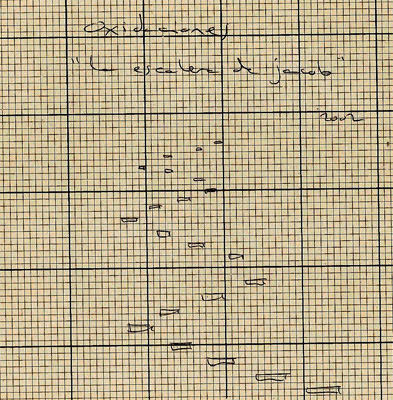 Oxidaciones
"La escalera de jacob"
2002